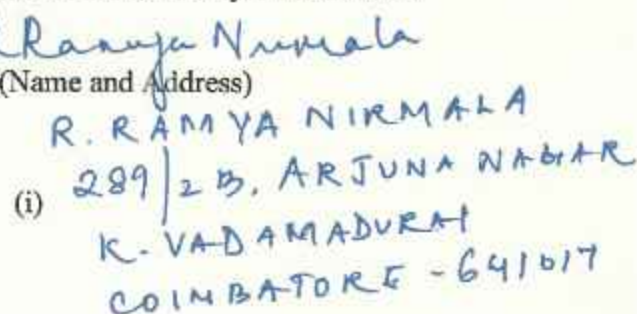 Ramya Nirmala
(Name and Address)
R. RAMYA NIRMALA
(i) 289/2B, ARJUNA NAGAR
K. VADAMADURAI
COIMBATORE - 641017